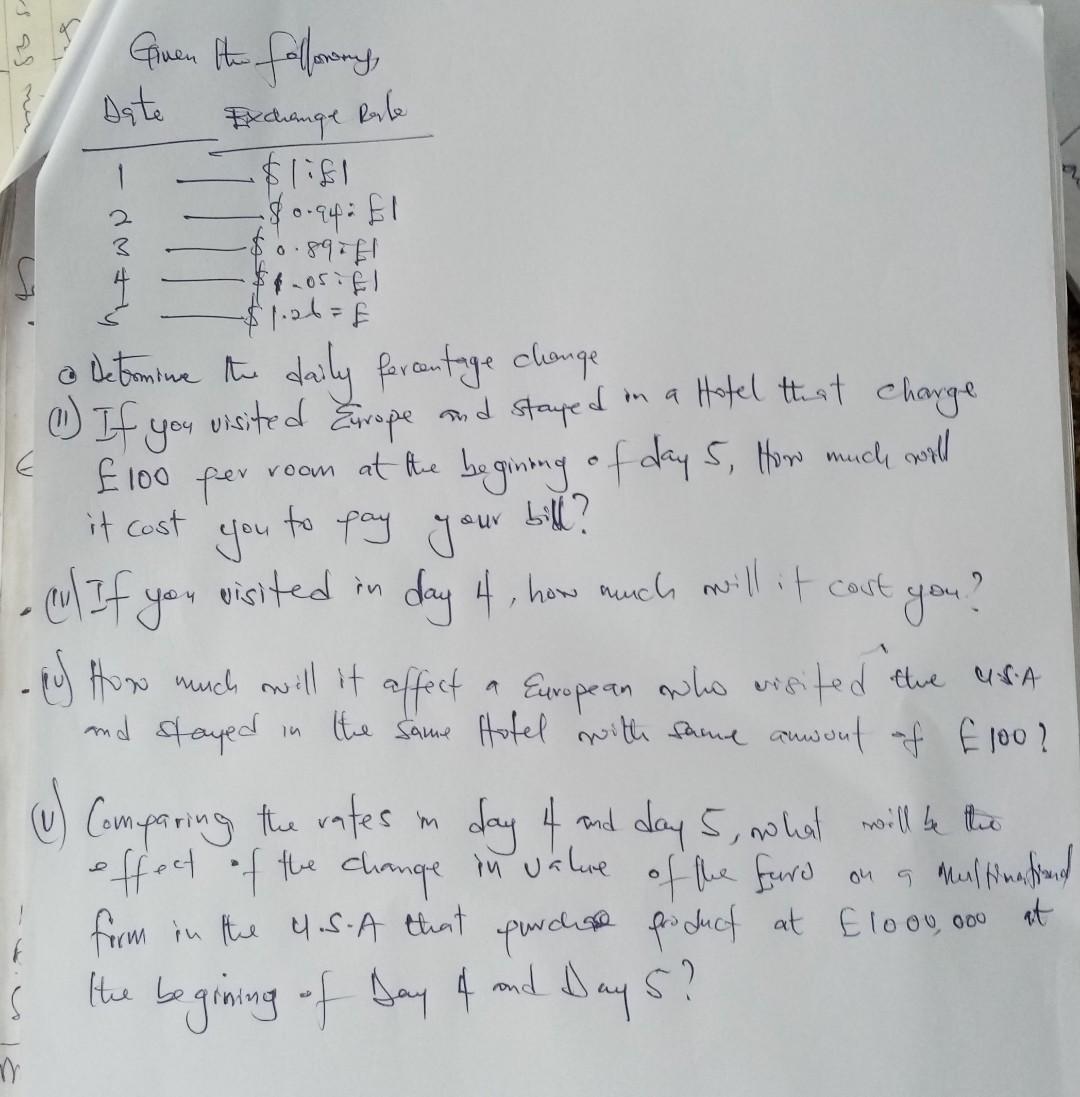 Given the following,
Date Exchange Rate
1 — $1:£1
2 — $0.94:£1
3 — $0.89:£1
4 — $1.05:£1
5 — $1.26=£
Determine the daily percentage change
(11) If you visited Europe and stayed in a Hotel that charge
£100 per room at the begining of day 5, How much will
it cost you to pay your bill?
If you visited in day 4, how much will it cost you?
How much will it affect a European who visited the U.S.A
and stayed in the same Hotel with same amount of £100?
(V) Comparing the rates in day 4 and day 5, what will be the
effect of the change in value of the Euro on a Multinational
firm in the U.S.A that purchase product at £1000,000 at
the begining of Day 4 and Day 5?